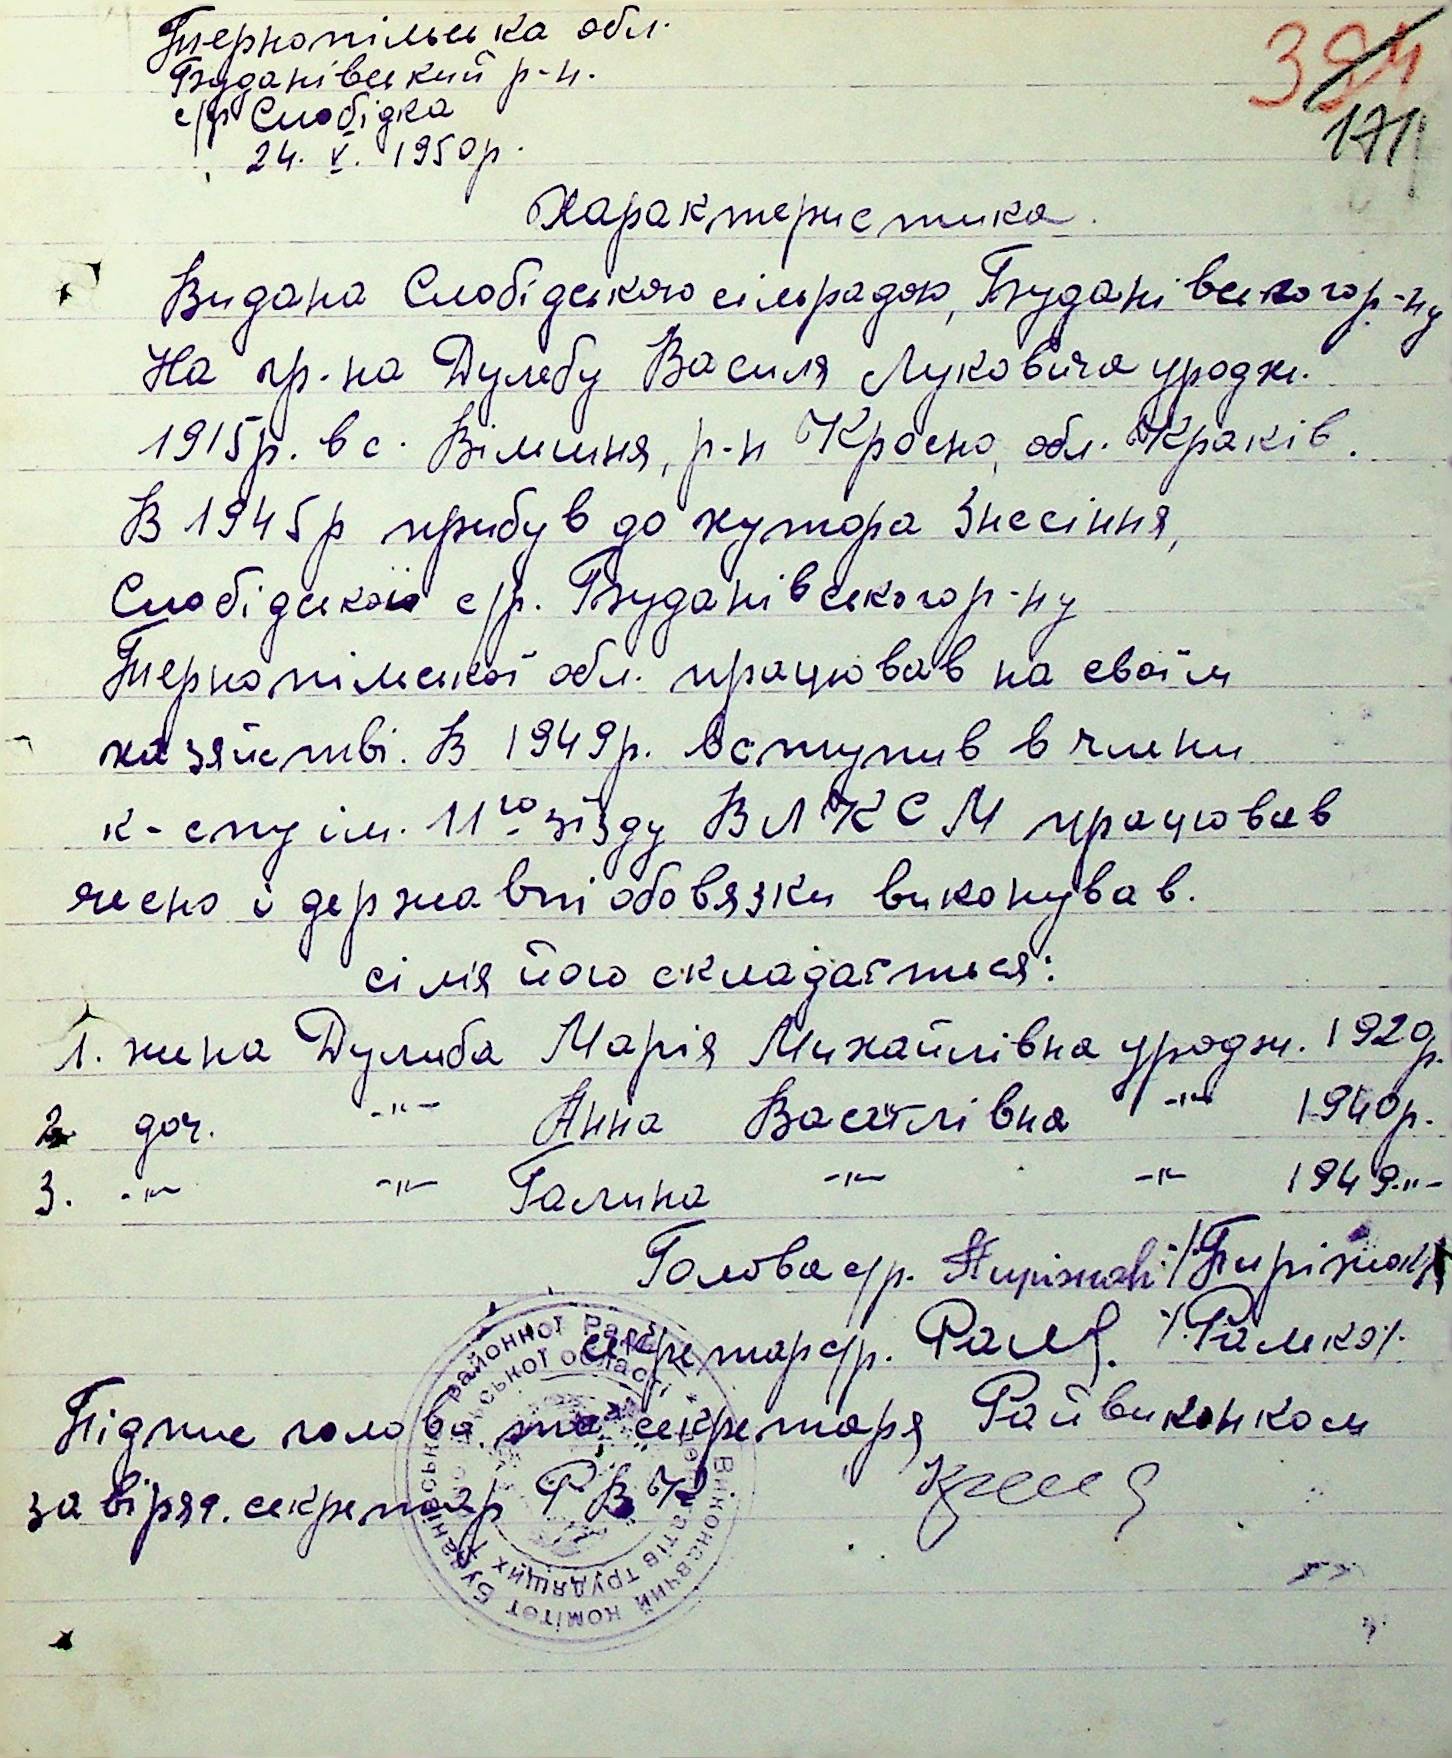 Тернопільська обл.
Буданівський р-н.
с/р Слобідка
24. V. 1950р.
394
171
Характеристика.
Видана Слобідською сільрадою, Буданівського р-ну
На гр-на Дулебу Василя Луковича уродж.
1915р. в с. Вільшня, р-н Кросно, обл. Краків.
В 1945р прибув до хутора Знесіння,
Слобідської с/р. Буданівського р-ну
Тернопільської обл. працював на своїм
хазяйстві. В 1949р. вступив в члени
к-спу ім. 11го зїзду ВЛКСМ працював
чесно і державні обовязки виконував.
сімя його складається:
1. жена Дулиба Марія Михайлівна уродж. 1920р.
2 доч. -"- Анна Василівна -"- 1940р.
3. -"- -"- Галина -"- -"- 1949 -"-
Голова с/р. /Пиріжок/
секретар с/р. /Ралько/.
Підпис голови та секретаря Райвиконком
завіряє. секретар РВК
Виконавчий комітет Буданівської районної Ради
депутатів трудящих
області